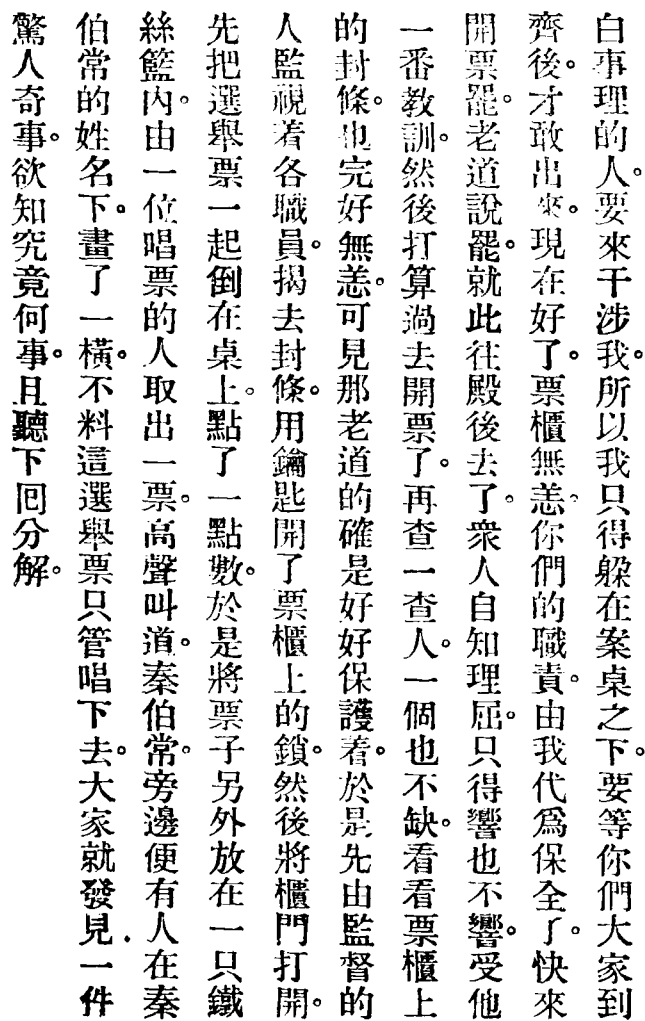 白事理的人。要來干涉我。所以我只得躱在案桌之下。要等你們大家到
齊後。才敢出來。現在好了。票櫃無恙。你們的職責。由我代爲保全了。快來
開票罷。老道說罷。就此往殿後去了。衆人自知理屈。只得響也不響。受他
一番教訓。然後打算過去開票了。再查一查人。一個也不缺。看看票櫃上
的封條。也完好無恙。可見那老道的確是好好保護着。於是先由監督的
人監視着各職員。揭去封條。用鑰匙開了票櫃上的鎖。然後將櫃門打開。
先把選舉票一起倒在桌上。點了一點數。於是將票子另外放在一只鐵
絲籃內。由一位唱票的人取出一票。高聲叫道。秦伯常。旁邊便有人在秦
伯常的姓名下。畫了一橫。不料這選舉票只管唱下去。大家就發見一件
驚人奇事。欲知究竟何事。且聽下囘分解。